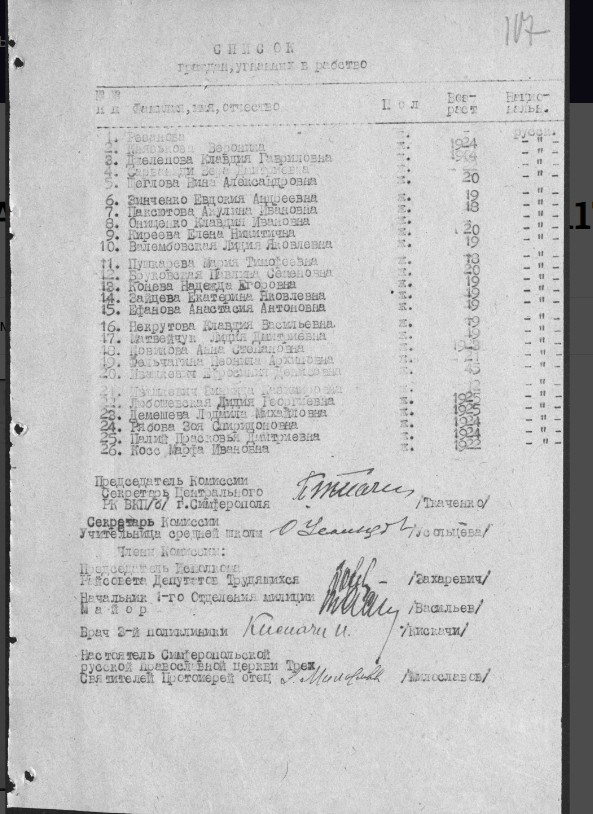 107
СПИСОК
граждан, угнанных в рабство
№ №
п п Фамилия, имя, отчество Пол Воз-раст Нацио-нальн.
1. ж. - русск.
2. Вероника ж. 1924 - " -
3. Клавдия Гавриловна ж. - " -
4. Вера Дмитриевна ж. - " -
5. Щеглова Нина Александровна ж. 20 - " -
6. Зинченко Евдокия Андреевна ж. 19 - " -
7. Паксютова Акулина Ивановна ж. 18 - " -
8. Онищенко Клавдия Ивановна ж. - " -
9. Киреева Елена Никитична ж. 20 - " -
10. Валембовская Лидия Яковлевна ж. 19 - " -
11. Пушкарева Мария Тимофеевна ж. 18 - " -
12. Вруковская Павлина Семеновна ж. 20 - " -
13. Конева Надежда Егоровна ж. 19 - " -
14. Зайцева Екатерина Яковлевна ж. 19 - " -
15. Ефанова Анастасия Антоновна ж. 19 - " -
16. Некрутова Клавдия Васильевна ж. 19 - " -
17. Матвейчук Лидия Дмитриевна ж. - " -
18. Новикова Анна Степановна ж. - " -
19. Леонида Архиповна ж. - " -
20. ж. - " -
21. ж. 12 - " -
22. Любошевская Лидия Георгиевна ж. 1925 - " -
23. Демешева Людмила Михайловна ж. 1925 - " -
24. Рябова Зоя Спиридоновна ж. 1924 - " -
25. Палий Прасковья Дмитриевна ж. 1924 - " -
26. Косс Марфа Ивановна ж. 1922 - " -
Председатель Комиссии
Секретарь Центрального
РК ВКП/б/ г.Симферополя /Ткаченко/
Секретарь Комиссии
Учительница средней школы /Усольцева/
Члены Комиссии:
Председатель Исполкома
Райсовета Депутатов Трудящихся /Захаревич/
Начальник 1-го Отделения милиции
Майор /Васильев/
Врач 3-й поликлиники /Кискачи/
Настоятель Симферопольской
русской православной церкви Трех
Святителей Протоиерей отец /Милославов/